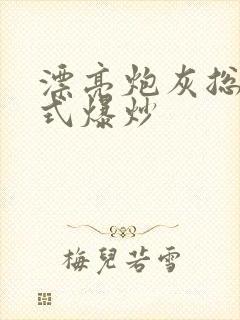 漂亮炮灰总
式爆炒
梅兒若雪